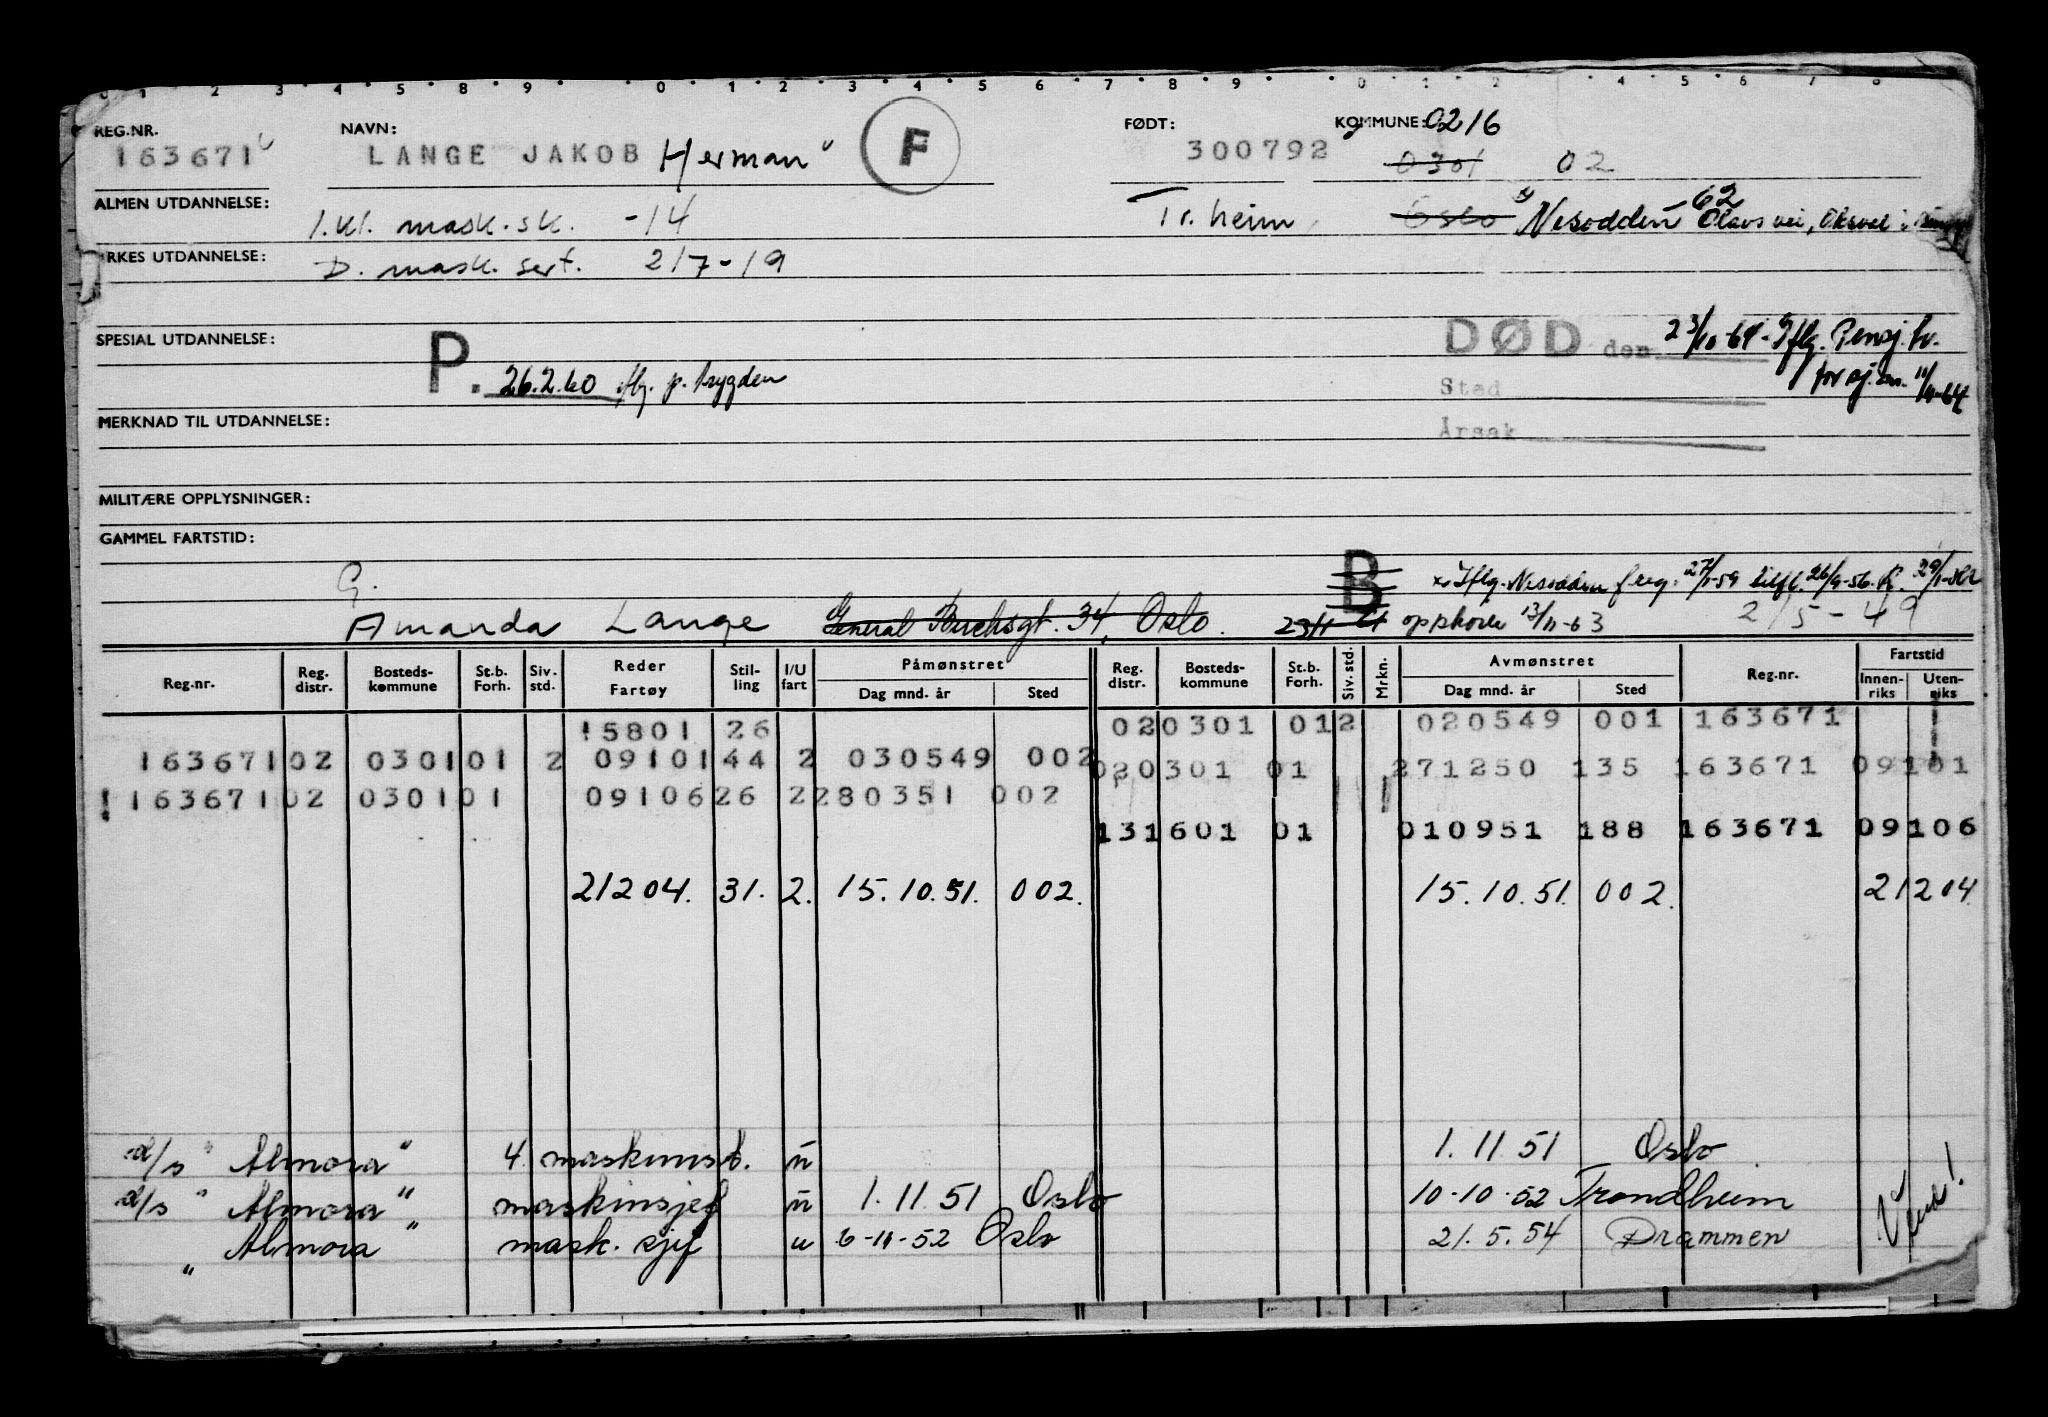 0 1 2 3 4 5 6 8 9 0 1 2 3 4 5 6 7 8 9 0 1 2 4 5 6 7 8
REG.NR. NAVN: FØDT: KOMMUNE: 0216
163671 LANGE JAKOB Herman F 300792 0301 02
ALMEN UTDANNELSE: 1.kl. mask.sk. -14 Tr.heim, Oslo Nesodden 62 Olavs vei,
YRKES UTDANNELSE: D. mask. sert. 2/7-19
SPESIAL UTDANNELSE: P. 26.2.60 iflg. p. trygden DØD den 23/10-64. Iflg. Pensj.tr.
Sted for sj.m. 11/11-64
MERKNAD TIL UTDANNELSE: Årsak
MILITÆRE OPPLYSNINGER:
GAMMEL FARTSTID:
G. B x Iflg. Nesodden f.reg. 27/1-59 tilfl. 26/9-56.
Amanda Lange General Buchsgt. 34, Oslo. opphører 13/11-63 2/5-49
Reg.nr. Reg. distr. Bosteds-kommune St.b. Forh. Siv. std. Reder Fartøy Stil-ling I/U fart Påmønstret Dag mnd. år Sted Reg. distr. Bosteds-kommune St.b. Forh. Siv. std. Mrkn. Avmønstret Dag mnd. år Sted Reg.nr. Fartstid Innen-riks Uten-riks
15801 26 020301 012 020549 001 163671
163671 02 0301 01 2 09101 44 2 030549 002 020301 01 271250 135 163671 09101
163671 02 0301 01 09106 26 2 280351 002
131601 01 010951 188 163671 09106
21204. 31. 2. 15.10.51. 002. 15.10.51. 002. 21204.
d/s "Almora" 4 maskinist. u 1.11.51 Oslo
d/s "Almora" maskinsjef u 1.11.51 Oslo 10-10-52 Trondheim
" Almora " mask. sjef u 6-11-52 Oslo 21.5.54 Drammen